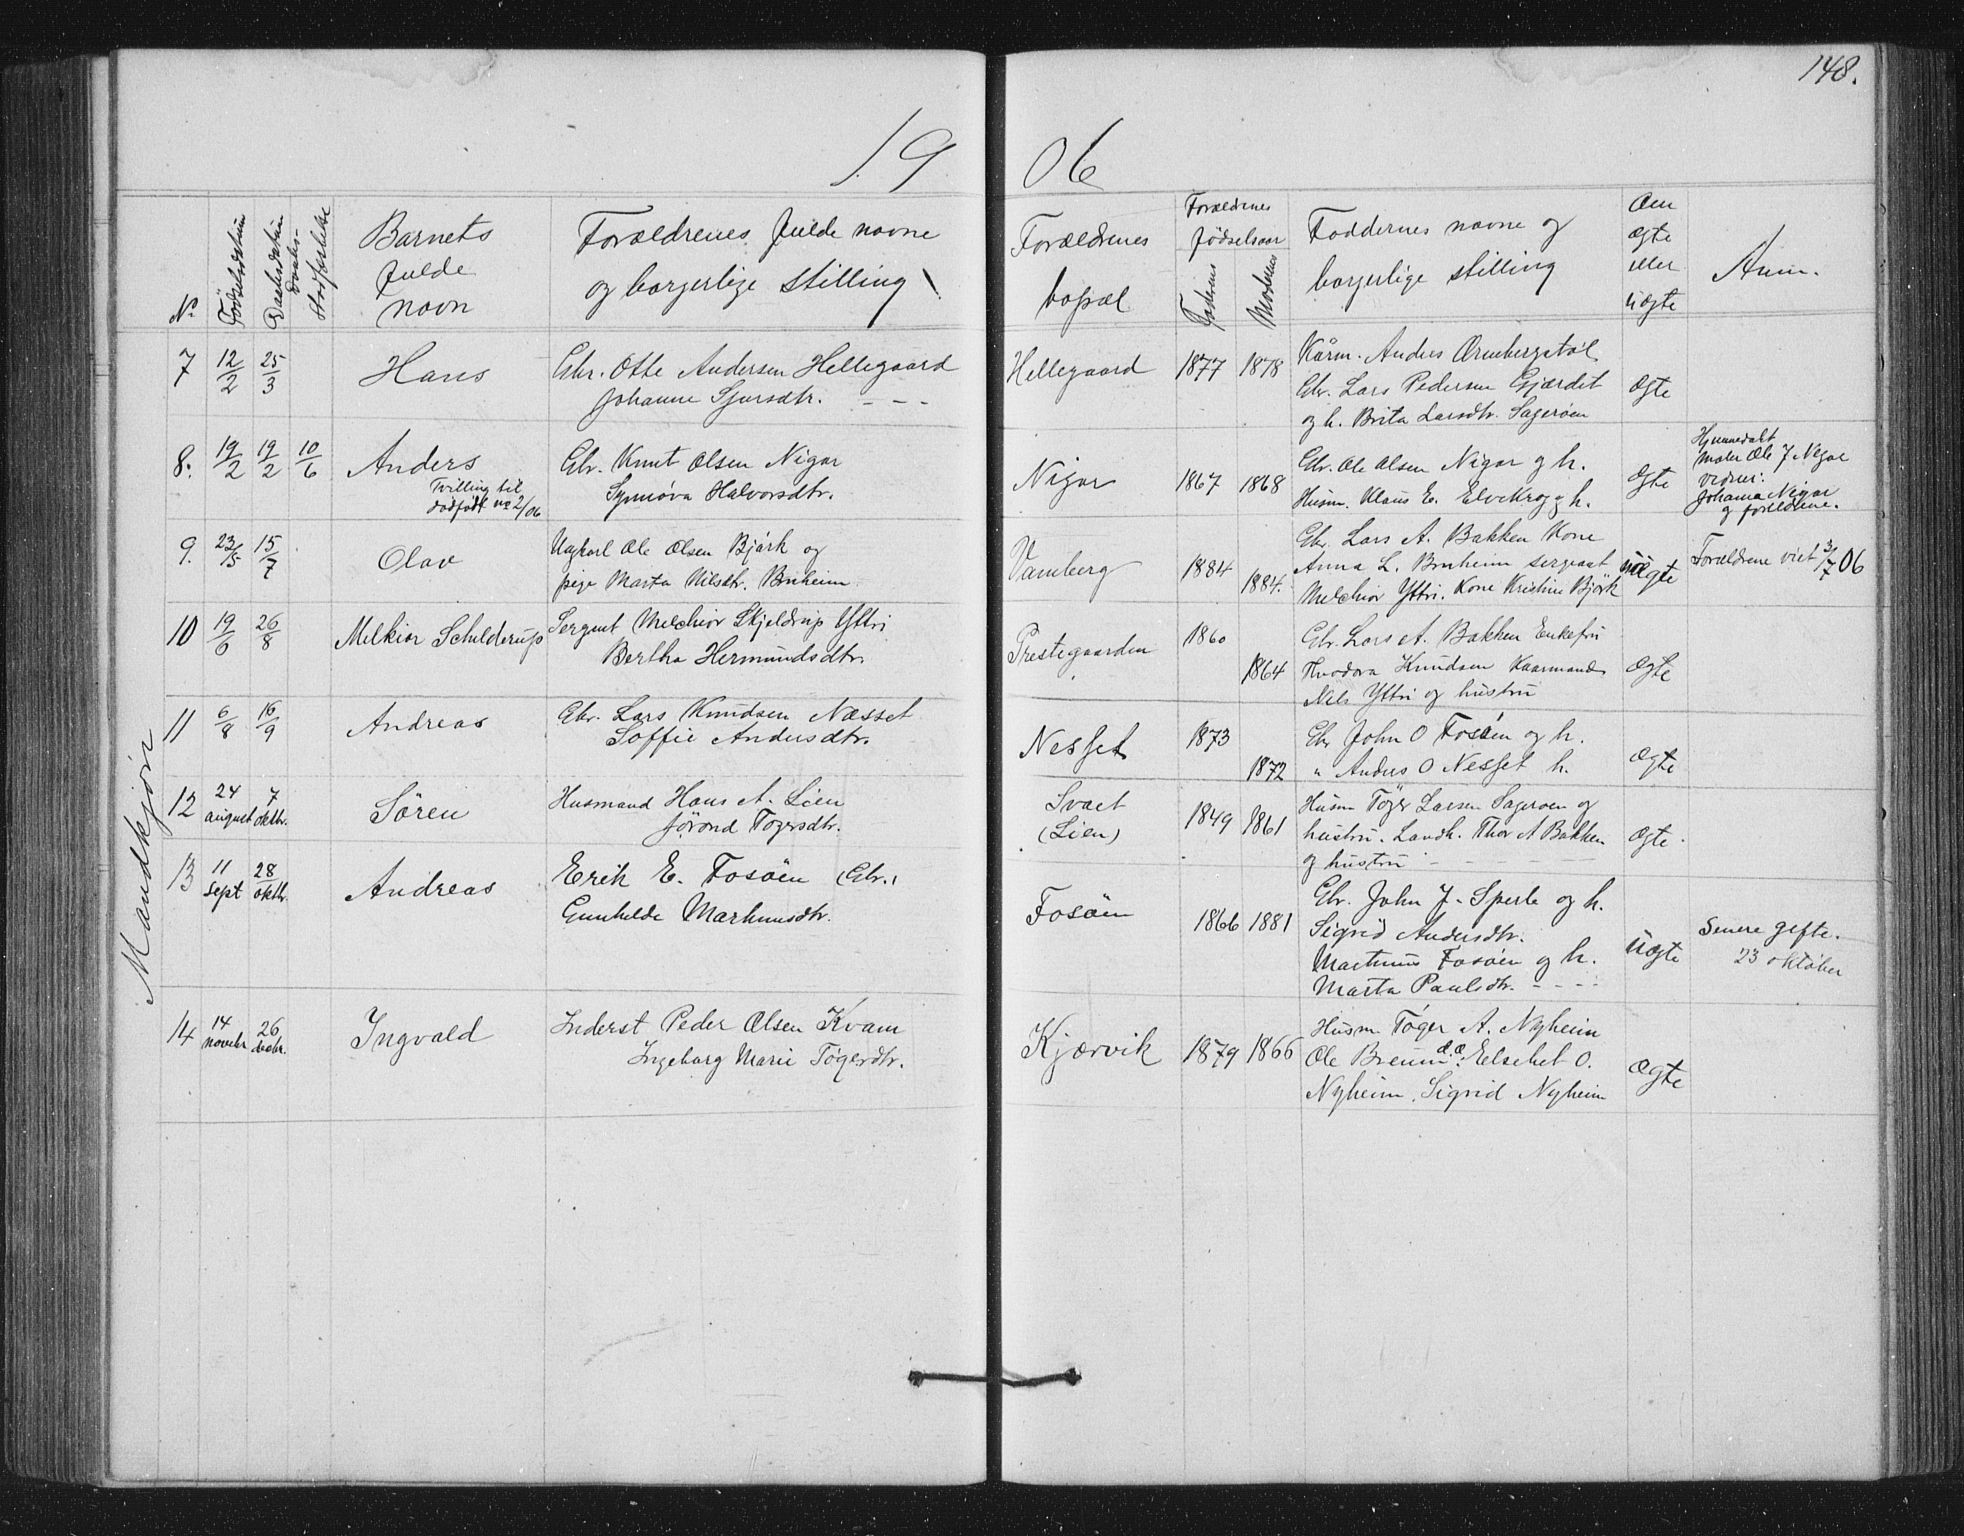 148.
19 06
Mandkjøn
No
Fødselsdatum
Daabsdatum
Daabs-
Stadfæstelse
Barnets
fulde
navn
Forældrenes fulde navne
og borgerlige stilling
Forældrenes
bopæl
Forældrenes
fødselsaar
Faderens
Moderens
Faddernes navne og
borgerlige stilling
Om
ægte
eller
uægte
Anm.
7 12/2 25/3 Hans Gbr. Otte Andersen Hellegaard
Johanne Sjursdtr. - - -
Hellegaard 1877 1878 Kårm. Anders Ørnbergstøl
Gbr. Lars Pedersen Gjærdet
og h. Brita Larsdtr. Sagerøen
ægte
8. 19/2 19/2 10/6 Anders
Tvilling til
dødfødt no 2/06
Gbr. Knut Olsen Nigar
Synnøva Halvorsdtr.
Nigar 1867 1868 Gbr. Ole Olsen Nigar og h.
Husm. Klaus E. Elvekrog og h.
ægte
Hjemmedøbt
Ole J Nigar
vidner:
Johanna Nigar
og forældrene.
9. 23/5 15/7 Olav Ungkarl Ole Olsen Bjørk og
pige Marta Nilsdtr. Bruheim
Vamberg 1884 1884. Gbr. Lars A. Bakken Kone
Anna L. Bruheim sergeant
Melchior Yttri. Kone Kristine Bjørk
uægte
Forældrene viet 3/7 06
10 19/6 26/8 Melkior Schilderup Sergent Melchior Skjeldrup Yttri
Bertha Hermundsdtr.
Prestegaarden 1860 1864 Gbr. Lars A. Bakken Enkefru
Knudsen Kaarmand
Nils Yttri og hustru
ægte
11 6/8 16/9 Andreas Gbr. Lars Knudsen Næsset
Soffie Andersdtr.
Nesset 1873 1872 Gbr John O Fosøen og h.
" Anders O Nesset h.
ægte
12 24 august 7 oktbr. Søren Husmand Hans A. Lien
Jørond Tøgersdtr.
Svaet
(Lien)
1849 1861 Husm Tøger Larsen Sagerøen og
hustru. Landh. Thor A Bakken
og hustru - - - - -
ægte.
13 11 sept 28 oktbr. Andreas Erik E. Fosøen (Gbr.)
Gunhilde Martinusdtr.
Fosøen 1866 1881 Gbr. John J. Sperle og h.
Sigrid Andersdtr.
Martinus Fosøen og h.
Marta Paulsdtr. - - - -
uægte
Senere gifte.
23 oktober
14 14 novebr 26 decbr. Ingvald Inderst Peder Olsen Kvam
Ingeborg Marie Tøgersdtr.
Kjærvik 1879 1866 Husm Tøger A. Nyheim
Ole Breum d.æ. Elsebet O.
Nyheim, Sigrid Nyheim
ægte